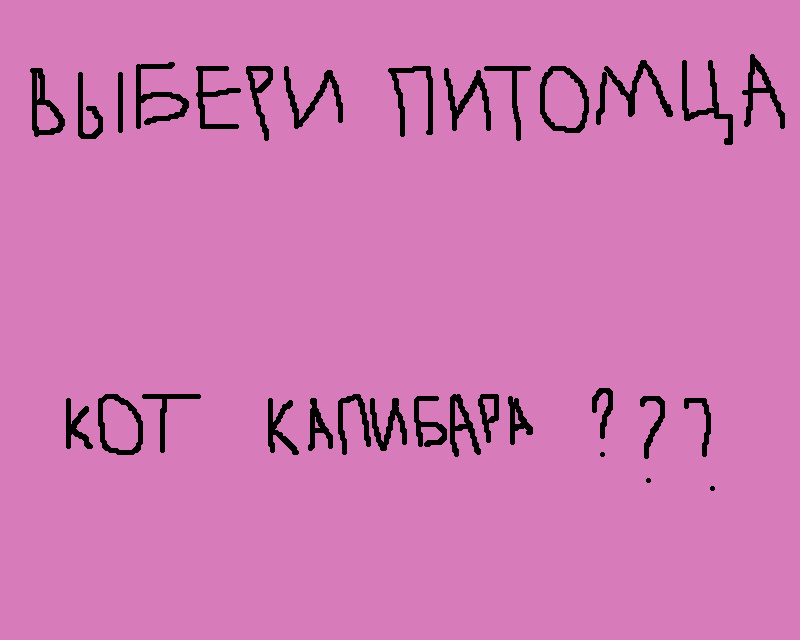 ВЫБЕРИ ПИТОМЦА
КОТ КАПИБАРА ???